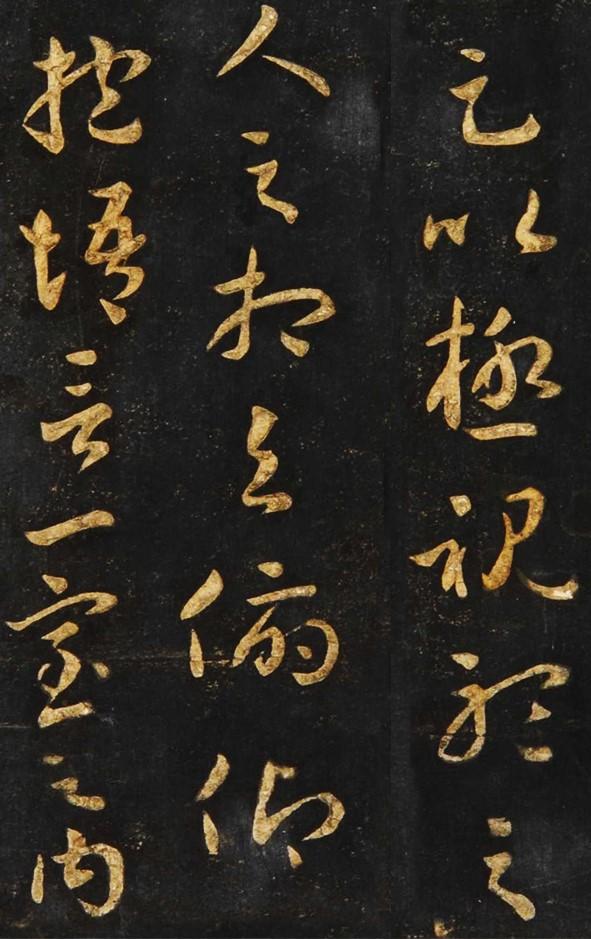 足以極視聽之
人之相與俯仰
抱悟言一室之內